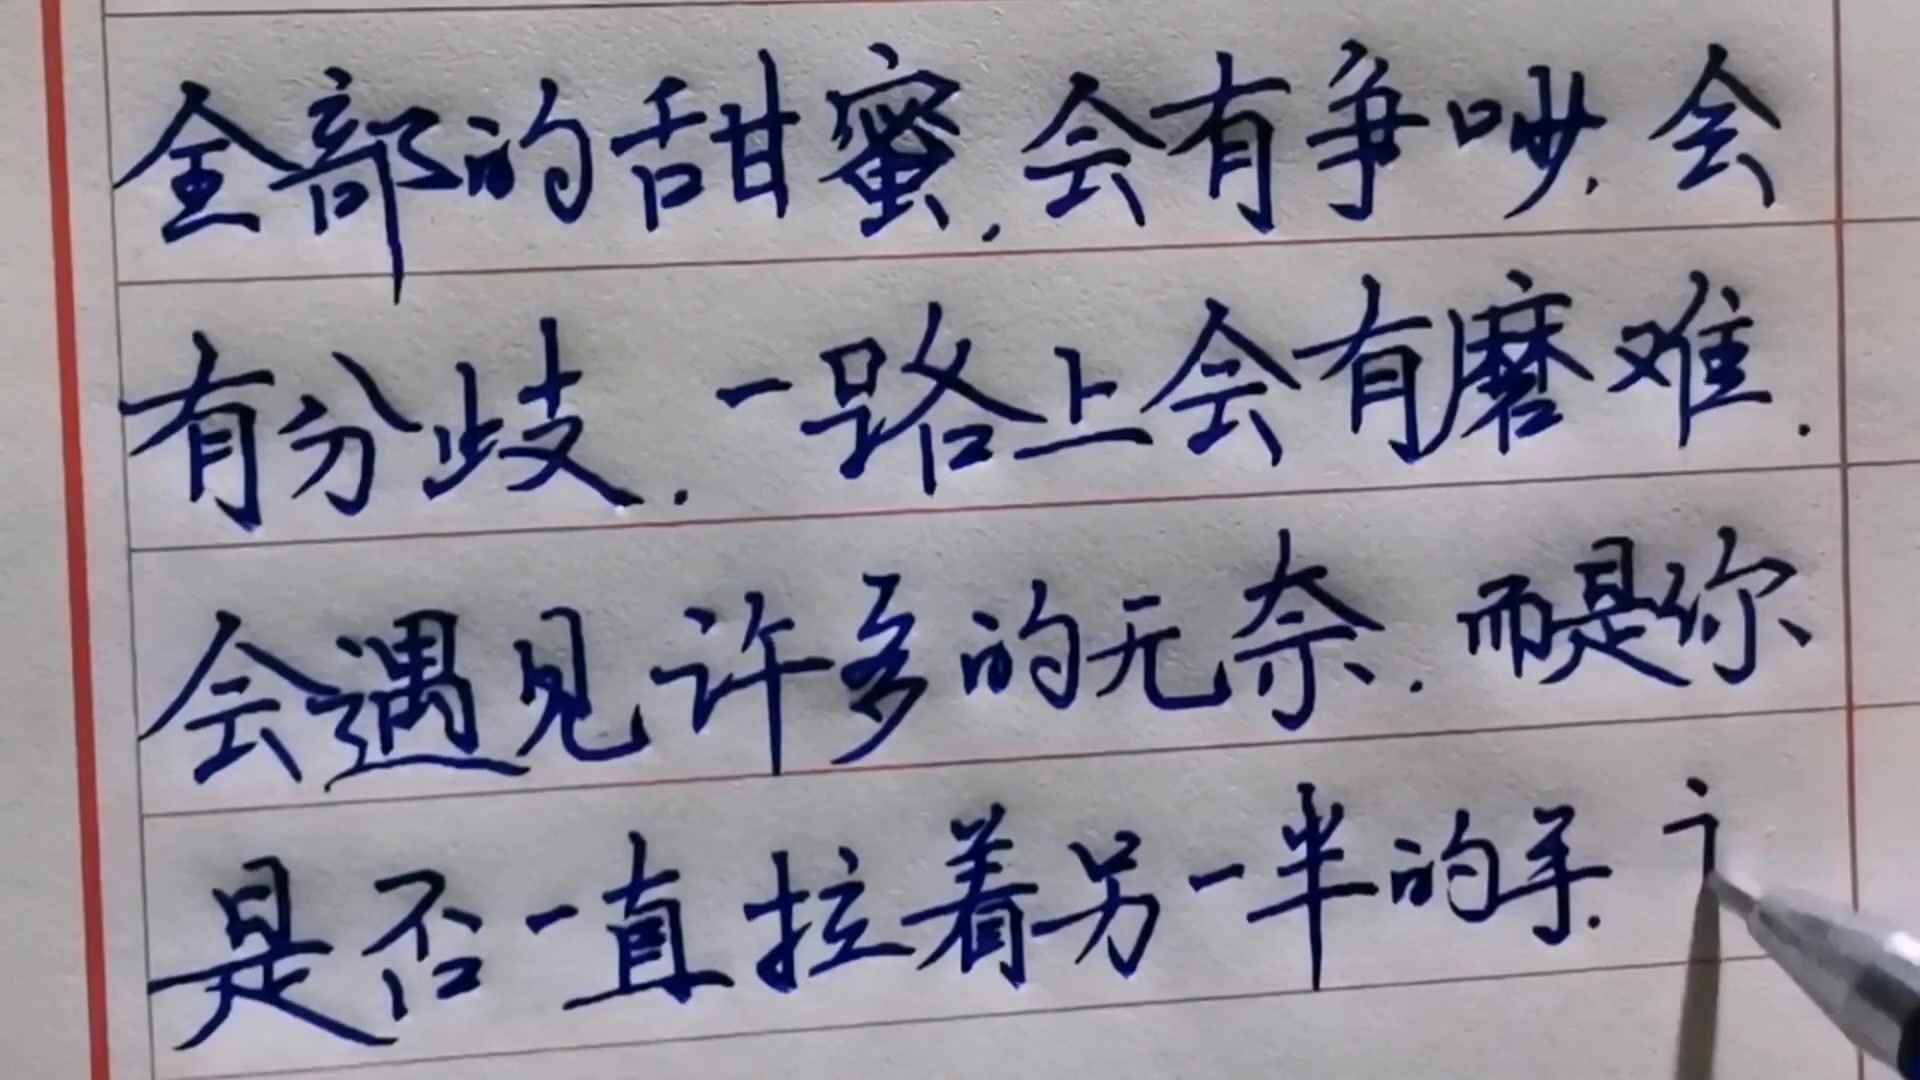 全部的甜蜜.会有争吵.会
有分歧.一路上会有磨难.
会遇见许多的无奈.而是你
是否一直拉着另一半的手.